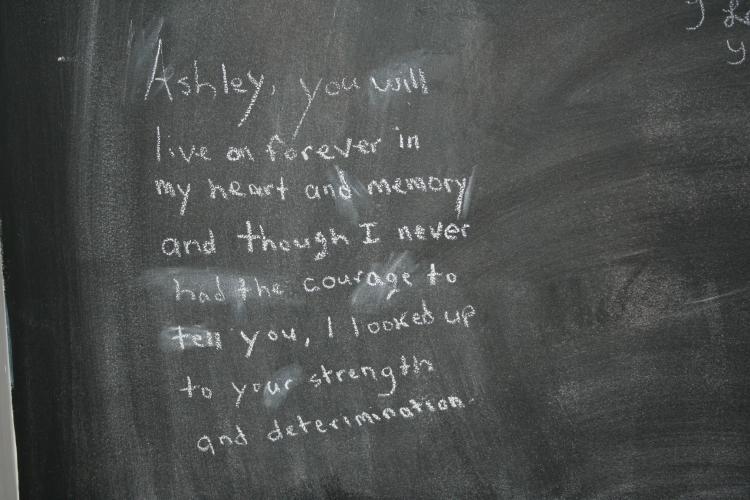 Ashley, you will
live on forever in
my heart and memory
and though I never
had the courage to
tell you, I looked up
to your strength
and deterimination